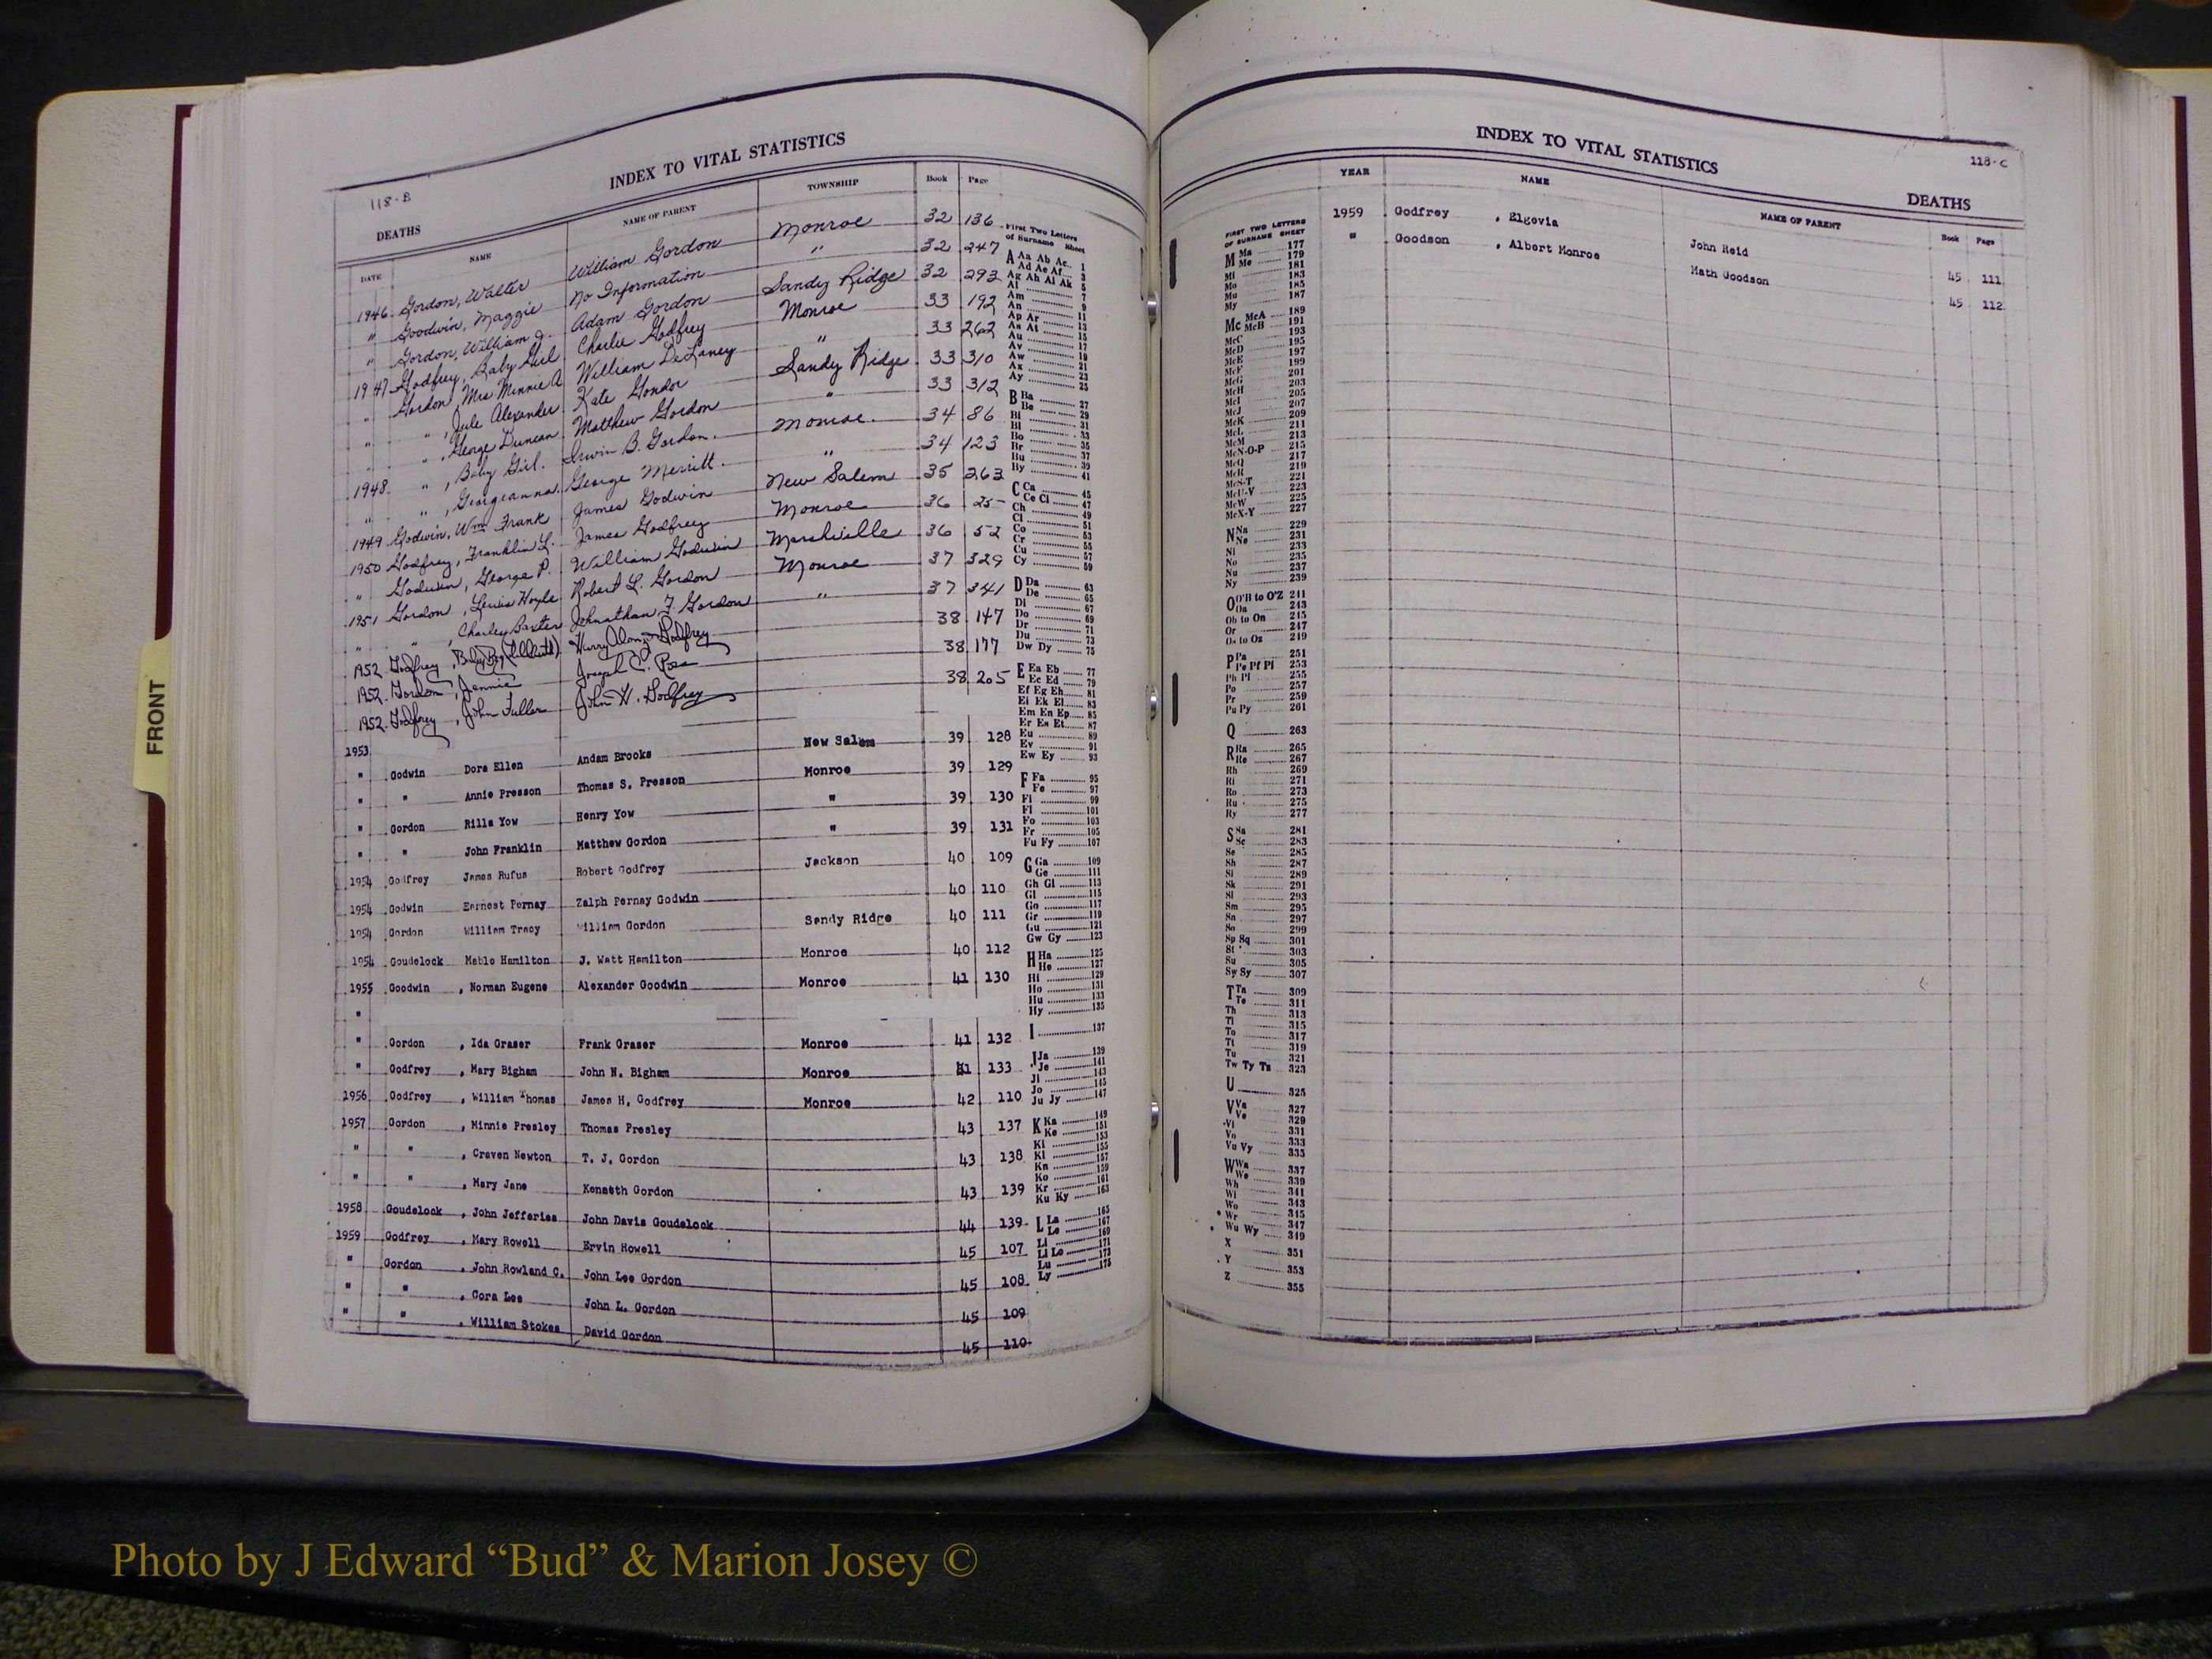 FRONT
118-B
INDEX TO VITAL STATISTICS
DEATHS
DATE NAME NAME OF PARENT TOWNSHIP Book Page
1946 Gordon, Walter William Gordon Monroe 32 136
" Goodwin, Maggie No Information " 32 247
" Gordon, William J. Adam Gordon Sandy Ridge 32 293
1947 Godfrey, Baby Girl Charlie Godfrey Monroe 33 192
" Gordon, Mrs Minnie A William DeLaney " 33 262
" " , Jule Alexander Kate Gordon Sandy Ridge 33 310
" " , George Duncan Matthew Gordon " 33 312
1948 " , Baby Girl. Irwin B. Gordon. Monroe. 34 86
" " , Georgeanna. George Merritt. " 34 123
1949 Godwin, Wm Frank James Godwin New Salem 35 263
1950 Godfrey, Franklin L. James Godfrey Monroe 36 25
" Godwin, George P. William Godwin Marshville 36 52
1951 Gordon, Lewis Hoyle Robert L. Gordon Monroe 37 329
" " Charley Baxter Johnathan F. Gordon " 37 341
1952 Godfrey, Baby Boy Harry Alonzo Godfrey 38 147
1952 Gordon, Jennie Joseph C. 38 177
1952 Godfrey, John Fuller John H. Godfrey 38 205
1953
" Godwin Dora Ellen Andam Brooks New Salem 39 128
" " Annie Presson Thomas S. Presson Monroe 39 129
" Gordon Rilla Yow Henry Yow " 39 130
" " John Franklin Matthew Gordon " 39 131
1954 Godfrey James Rufus Robert Godfrey Jackson 40 109
1954 Godwin Earnest Pernay Zalph Pernay Godwin 40 110
1954 Gordon William Tracy William Gordon Sandy Ridge 40 111
1954 Goudelock Mable Hamilton J. Watt Hamilton Monroe 40 112
1955 Goodwin , Norman Eugene Alexander Goodwin Monroe 41 130
"
" Gordon , Ida Graser Frank Graser Monroe 41 132
" Godfrey , Mary Bigham John N. Bigham Monroe 41 133
1956 Godfrey , William Thomas James H. Godfrey Monroe 42 110
1957 Gordon , Minnie Presley Thomas Presley 43 137
" " , Craven Newton T. J. Gordon 43 138
" " , Mary Jane Kenneth Gordon 43 139
1958 Goudelock , John Jefferies John Davis Goudelock 44 139
1959 Godfrey , Mary Rowell Ervin Rowell 45 107
" Gordon , John Rowland C. John Lee Gordon 45 108
" " , Cora Lee John L. Gordon 45 109
" " , William Stokes David Gordon 45 110
First Two Letters
of Surname Sheet
A Aa Ab Ac 1
Ad Ae Af 3
Ag Ah Ai Ak 5
Al 7
Am 9
An 11
Ap Ar 13
As At 15
Au 17
Av 19
Aw 21
Ax 23
Ay 25
B Ba 27
Be 29
Bi 31
Bl 33
Bo 35
Br 37
Bu 39
By 41
C Ca 45
Ce Ci 47
Ch 49
Cl 51
Co 53
Cr 55
Cu 57
Cy 59
D Da 63
De 65
Di 67
Do 69
Dr 71
Du 73
Dw Dy 75
E Ea Eb 77
Ec Ed 79
Ef Eg Eh 81
Ei Ek El 83
Em En Ep 85
Er Es Et 87
Eu 89
Ev 91
Ew Ey 93
F Fa 95
Fe 97
Fi 99
Fl 101
Fo 103
Fr 105
Fu Fy 107
G Ga 109
Ge 111
Gh Gi 113
Gl 115
Go 117
Gr 119
Gu 121
Gw Gy 123
H Ha 125
He 127
Hi 129
Ho 131
Hu 133
Hy 135
I 137
J Ja 139
Je 141
Ji 143
Jo 145
Ju Jy 147
K Ka 149
Ke 151
Ki 153
Kl 155
Kn 157
Ko 159
Kr 161
Ku Ky 163
L La 165
Le 167
Li 169
Ll Lo 171
Lu 173
Ly 175
INDEX TO VITAL STATISTICS
118-C
DEATHS
YEAR NAME NAME OF PARENT Book Page
1959 Godfrey , Elgevia John Reid 45 111
" Goodson , Albert Monroe Math Goodson 45 112
FIRST TWO LETTERS
OF SURNAME SHEET
M Ma 177
Me 179
Mi 181
Mo 183
Mu 185
My 187
Mc McA 189
McB 191
McC 193
McD 195
McE 197
McF 199
McG 201
McH 203
McI 205
McJ 207
McK 209
McL 211
McM 213
McN-O-P 215
McQ 217
McR 219
McS-T 221
McU-V 223
McW 225
McX-Y 227
N Na 229
Ne 231
Ni 233
No 235
Nu 237
Ny 239
O O'B to O'Z 241
Oa 243
Ob to On 245
Or 247
Os to Oz 249
P Pa 251
Pe Pf Pi 253
Ph Pl 255
Po 257
Pr 259
Pu Py 261
Q 263
R Ra 265
Re 267
Rh 269
Ri 271
Ro 273
Ru 275
Ry 277
S Sa 281
Sc 283
Se 285
Sh 287
Si 289
Sk 291
Sl 293
Sm 295
Sn 297
So 299
Sp Sq 301
St 303
Su 305
Sw Sy 307
T Ta 309
Te 311
Th 313
Ti 315
To 317
Tt 319
Tu 321
Tw Ty Ts 323
U 325
V Va 327
Ve 329
Vi 331
Vo 333
Vu Vy 335
W Wa 337
We 339
Wh 341
Wi 343
Wo 345
Wr 347
Wu Wy 349
X 351
Y 353
Z 355
Photo by J Edward “Bud” & Marion Josey ©